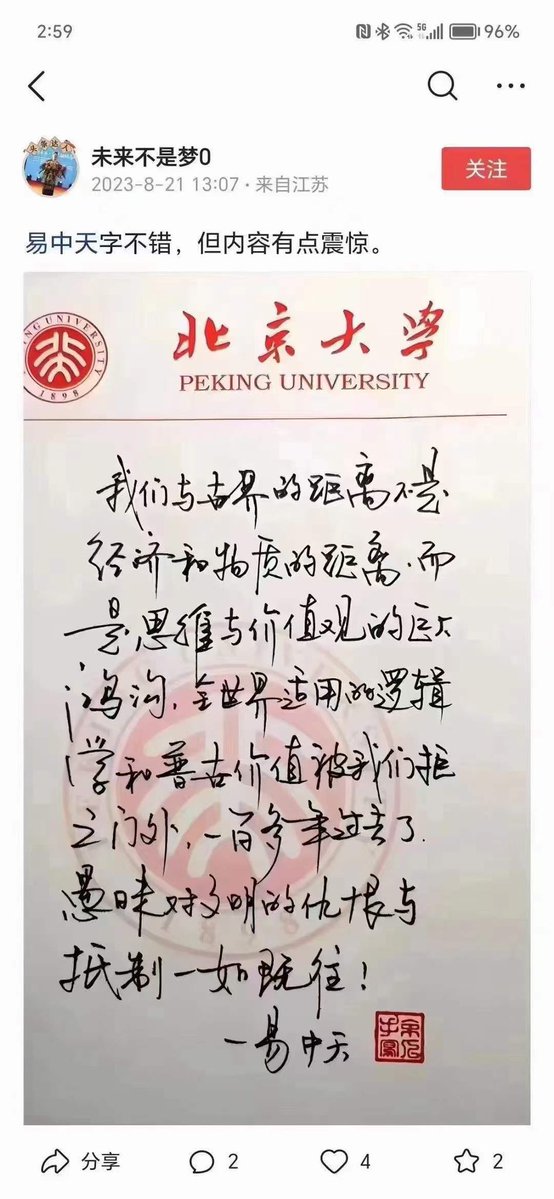 2:59
5G
96%
未来不是梦0
关注
2023-8-21 13:07 · 来自江苏
易中天字不错，但内容有点震惊。
北京大学
PEKING UNIVERSITY
PEKING UNIVERSITY
1898
我们与古界的距离不是
经济和物质的距离.而
是思维与价值观的巨大
鸿沟.全世界适用的逻辑
学和普古价值被我们拒
之门外.一百多年过去了.
愚昧对文明的仇恨与
抵制一如既往！
—易中天
分享
2
4
2